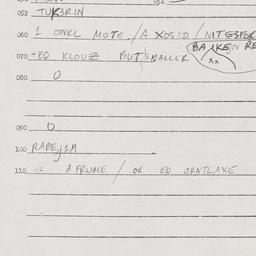 052 TUR3RIN
060 1 ONKL MOTE. / A XOSID / NITESFOR
BA KE IN RE
070 +EO KLOUZ BUT SMALLER XX
080 O
090 O
100 RABEJIM
110 = A FRUME / OR EO ORNTLAXE